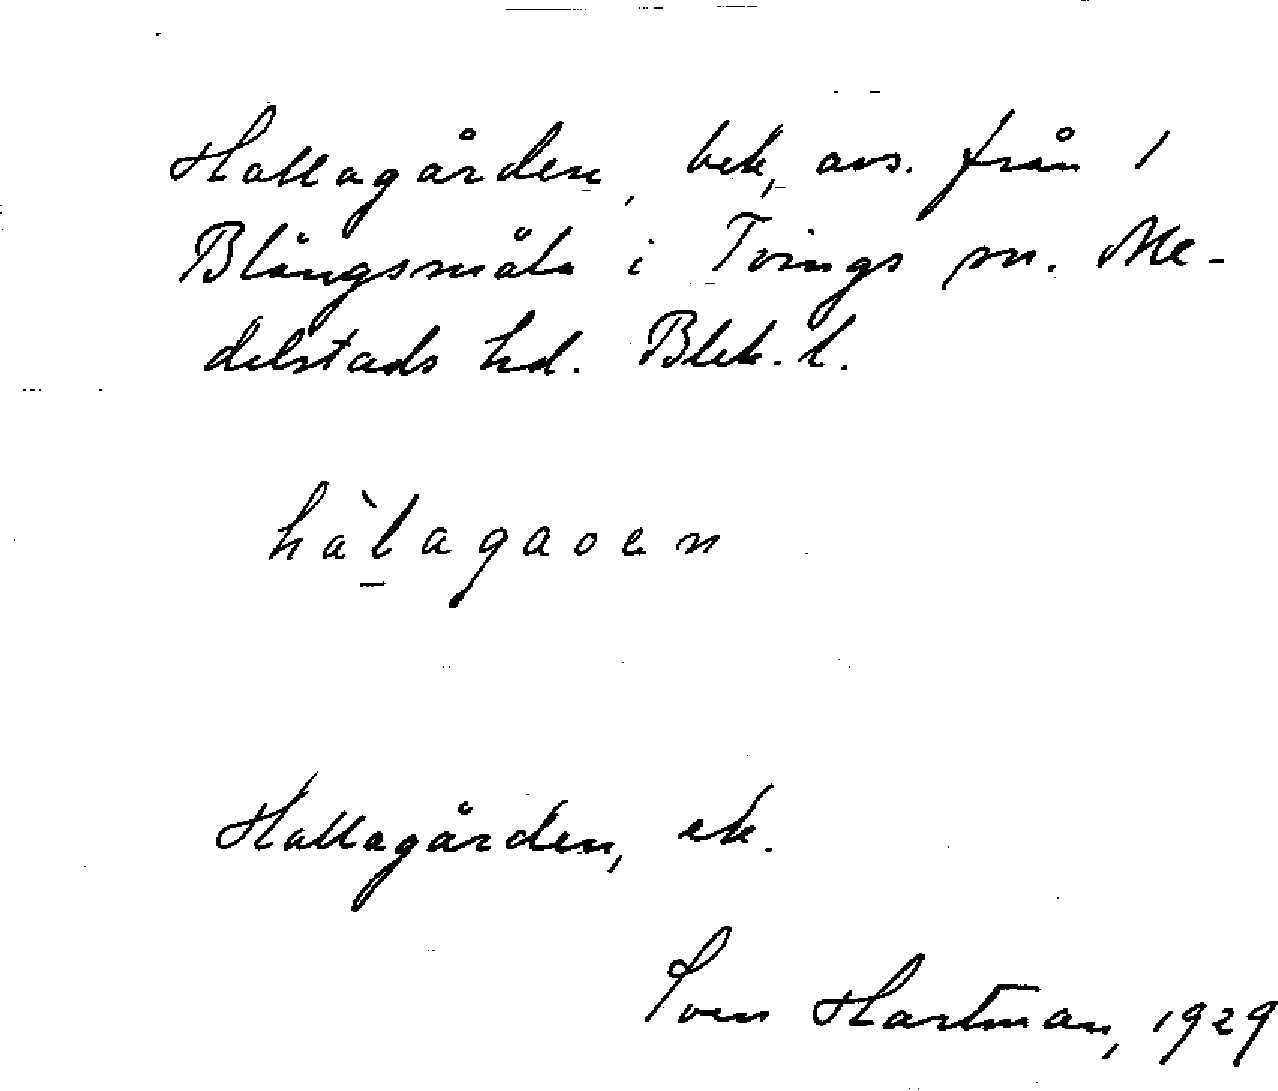 Hallagården, bek, avs. från 1
Blångsmåla i Tvings sn. Me-
delstads hd. Blek. l.
hàlagaoen
Hallagården, ek.
Sven Hartman, 1929